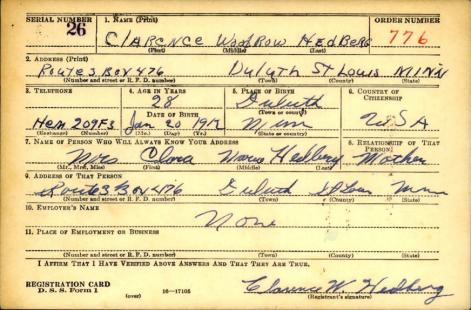 SERIAL NUMBER 1. NAME (Print) ORDER NUMBER
26 CLARENCE WOODROW HEDBERG 776
(First) (Middle) (Last)
2. ADDRESS (Print)
ROUTE 3 BOX 476 DULUTH ST LOUIS MINN
(Number and street or R. F. D. number) (Town) (County) (State)
3. TELEPHONE 4. AGE IN YEARS 5. PLACE OF BIRTH 6. COUNTRY OF CITIZENSHIP
28 Duluth
DATE OF BIRTH (Town or county)
Hem 209F3 Jan 20 1912 Minn USA
(Exchange) (Number) (Mo.) (Day) (Yr.) (State or country)
7. NAME OF PERSON WHO WILL ALWAYS KNOW YOUR ADDRESS 8. RELATIONSHIP OF THAT PERSON
Mrs Clara Marie Hedberg Mother
(Mr., Mrs., Miss) (First) (Middle) (Last)
9. ADDRESS OF THAT PERSON
Route 3 Box 476 Duluth St Louis Minn
(Number and street or R. F. D. number) (Town) (County) (State)
10. EMPLOYER'S NAME
None
11. PLACE OF EMPLOYMENT OR BUSINESS
(Number and street or R. F. D. number) (Town) (County) (State)
I AFFIRM THAT I HAVE VERIFIED ABOVE ANSWERS AND THAT THEY ARE TRUE.
REGISTRATION CARD
D. S. S. Form 1 (over) 16—17105 Clarence W. Hedberg
(Registrant's signature)